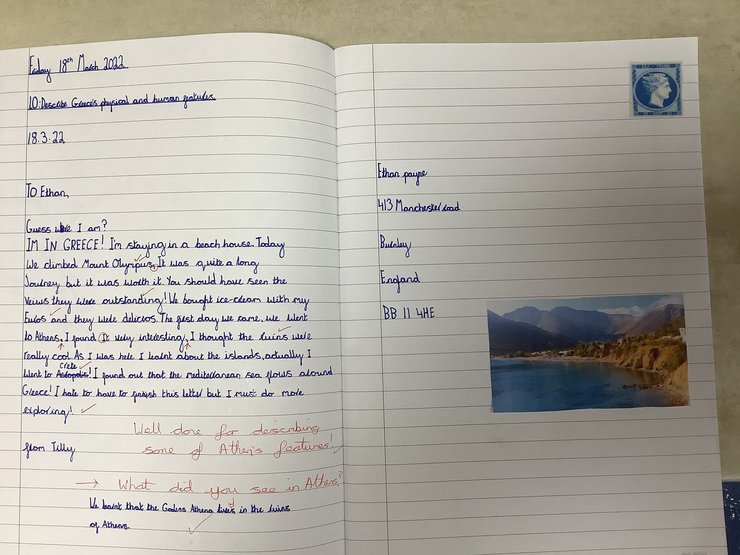 Friday 18th March 2022
LO: Describe Greece's physical and human features.
18.3.22
To Ethan,
Guess where I am?
IM IN GREECE! I'm staying in a beach house. Today
we climbed Mount Olympus. It was quite a long
Journey but it was worth it. You should have seen the
veiws they were outstanding! We bought ice-cream with my
Euros and they were delicios. The first day we came, we went
to Athens. I found It very interesting, I thought the ruins were
really cool. As I was here I learnt about the islands, actually I
went to Crete! I found out that the mediterranean sea flows around
Greece! I hate to have to finish this letter but I must do more
exploring!
from Tilly
Well done for describing
some of Athen's features!
→ What did you see in Athens?
We learnt that the Godess Athena lived in the ruins
of Athens.
Ethan payne
413 Manchester road
Burnley
England
BB 11 4HE